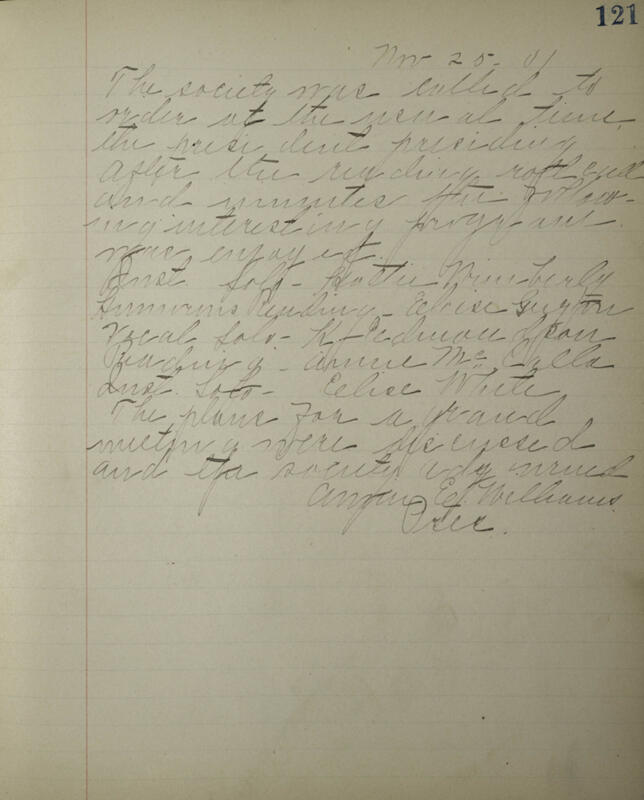 121
Nov 25-01
The society was called to
order at the usual time,
the president presiding
After the reading roll call
and minutes the follow-
ing interesting program
was enjoyed.
Inst. Solo - Hattie Wimberly
Humorous Reading - Eloise
Vocal Solo - K. Edmondson
Reading - Annie McCalla
Inst. Solo - Elise White
The plans for a grand
meeting were discussed
and the society adjourned
E. Williams
Sec.